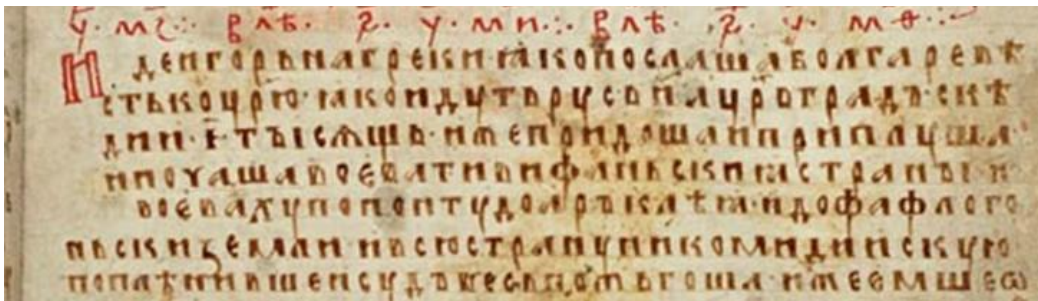 у҃ · м҃з ·:· в лѣ҃ · ҂ѕ҃ · у҃ · м҃и ·:· в лѣ҃ · ҂ѕ҃ · у҃ · м҃ѳ ·:·
И де игорь на греки · ꙗко послаша болгаре вѣ
сть ко цр҃ю · ꙗко идуть русь на цр҃ьградъ · скѣ
дии · і҃ · тысѧщь · иже придоша и приплуша ·
и почаша воевати вифаньскиꙗ страны · и
воеваху по понту до аръклѣꙗ · и до фафлого
ньски земли · и всю страну никомидиискую
поплѣнивше · и судъ весь пожьгоша · иже емше ѡ